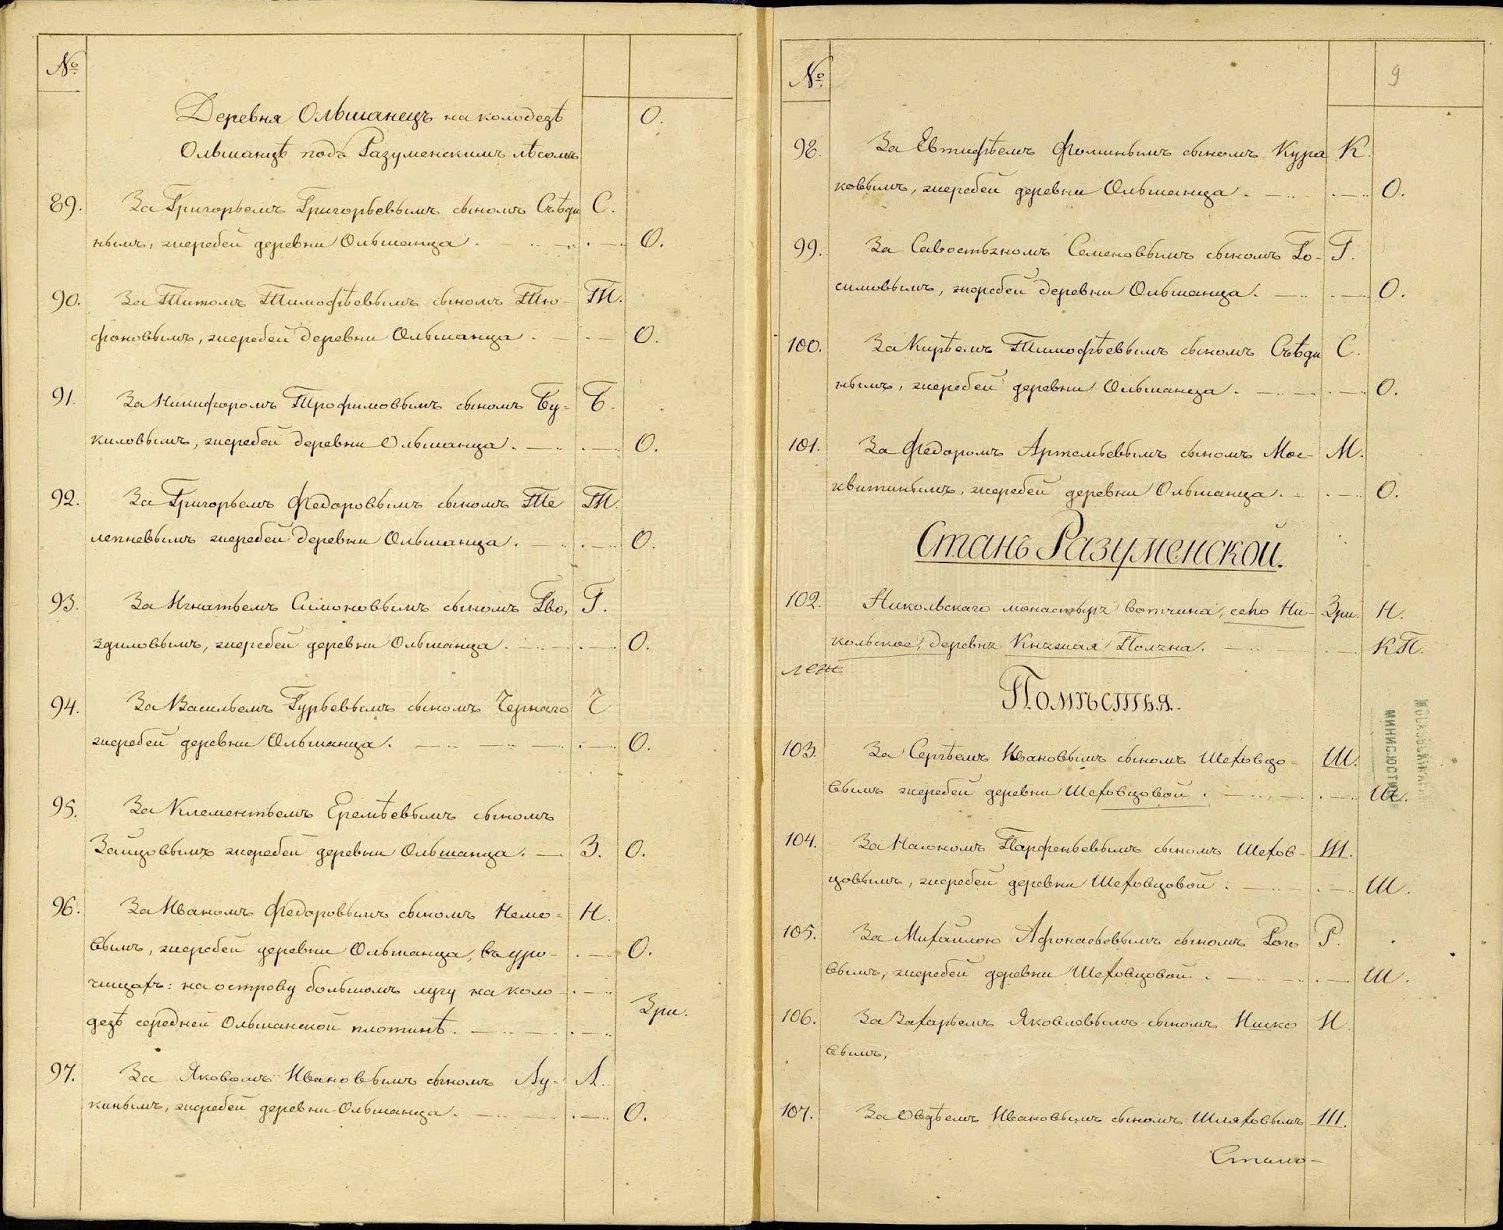 №
Деревня Ольшанецъ на колодезѣ О.
Ольшанцѣ подъ Разуменскимъ лѣсомъ
89. За Григорьемъ Григорьевымъ сыномъ Съѣди С.
нымъ, жеребей деревни Ольшанца. О.
90. За Титомъ Тимофѣевымъ сыномъ Тю- Т.
фоновымъ, жеребей деревни Ольшанца. О.
91. За Никифоромъ Трофимовымъ сыномъ Бу- Б.
киловымъ, жеребей деревни Ольшанца. О.
92. За Григорьемъ Федоровымъ сыномъ Те Т.
лепневымъ жеребей деревни Ольшанца. О.
93. За Игнатьемъ Симоновымъ сыномъ Гво, Г.
здиловымъ, жеребей деревни Ольшанца. О.
94. За Васильемъ Гурьевымъ сыномъ Чернаго Ч
жеребей деревни Ольшанца. О.
95. За Клементьемъ Еремѣевымъ сыномъ
Зайцовымъ жеребей деревни Ольшанца. З. О.
96. За Иваномъ Федоровымъ сыномъ Немо- Н.
вымъ, жеребей деревни Ольшанца, въ уро- О.
чищахъ: на острову большомъ лугу на коло
дезѣ середней Ольшанской плотинѣ. Зри.
97. За Яковомъ Ивановымъ сыномъ Лу- Л.
кинымъ, жеребей деревни Ольшанца. О.
№ 9
98. За Евтифѣемъ Фоминымъ сыномъ Кура К.
ковымъ, жеребей деревни Ольшанца. О.
99. За Савостьяномъ Семеновымъ сыномъ Го- Г.
симовымъ, жеребей деревни Ольшанца. О.
100. За Кирѣемъ Тимофѣевымъ сыномъ Съѣди С.
нымъ, жеребей деревни Ольшанца. О.
101. За Федоромъ Артемьевымъ сыномъ Мос- М.
квитинымъ, жеребей деревни Ольшанца. О.
Станъ Разуменской.
102. Никольскаго монастыря вотчина, село Ни- Зри. Н.
кольское, деревня Княжая Поляна. КП.
Помѣстья.
103. За Сергѣемъ Ивановымъ сыномъ Шеховцо- Ш.
вымъ жеребей деревни Шеховцовой. Ш.
104. За Насономъ Парфеньевымъ сыномъ Шехов- Ш.
цовымъ, жеребей деревни Шеховцовой. Ш.
105. За Михайлою Афонасьевымъ сыномъ Рого Р.
вымъ, жеребей деревни Шеховцовой. Ш.
106. За Захарьемъ Яковлевымъ сыномъ Ниско Н.
вымъ,
107. За Овдѣемъ Ивановымъ сыномъ Шляховымъ Ш.